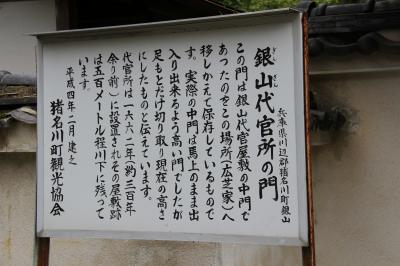 銀山代官所の門
ぎんざん
兵庫県川辺郡猪名川町銀山
この門は銀山代官屋敷の中門で
あったのをこの場所(広芝家)へ
移しかえて保存しているもので
す。実際の中門は馬上のまま出
入り出来るよう高い門でしたが
足もとだけ切り取り現在の高さ
にしたものと伝えています。
代官所は一六六二年(約三百年
余り前)に設置されその屋敷跡
は五百メートル程川下に残って
います。
平成四年二月 建之
猪名川町観光協会